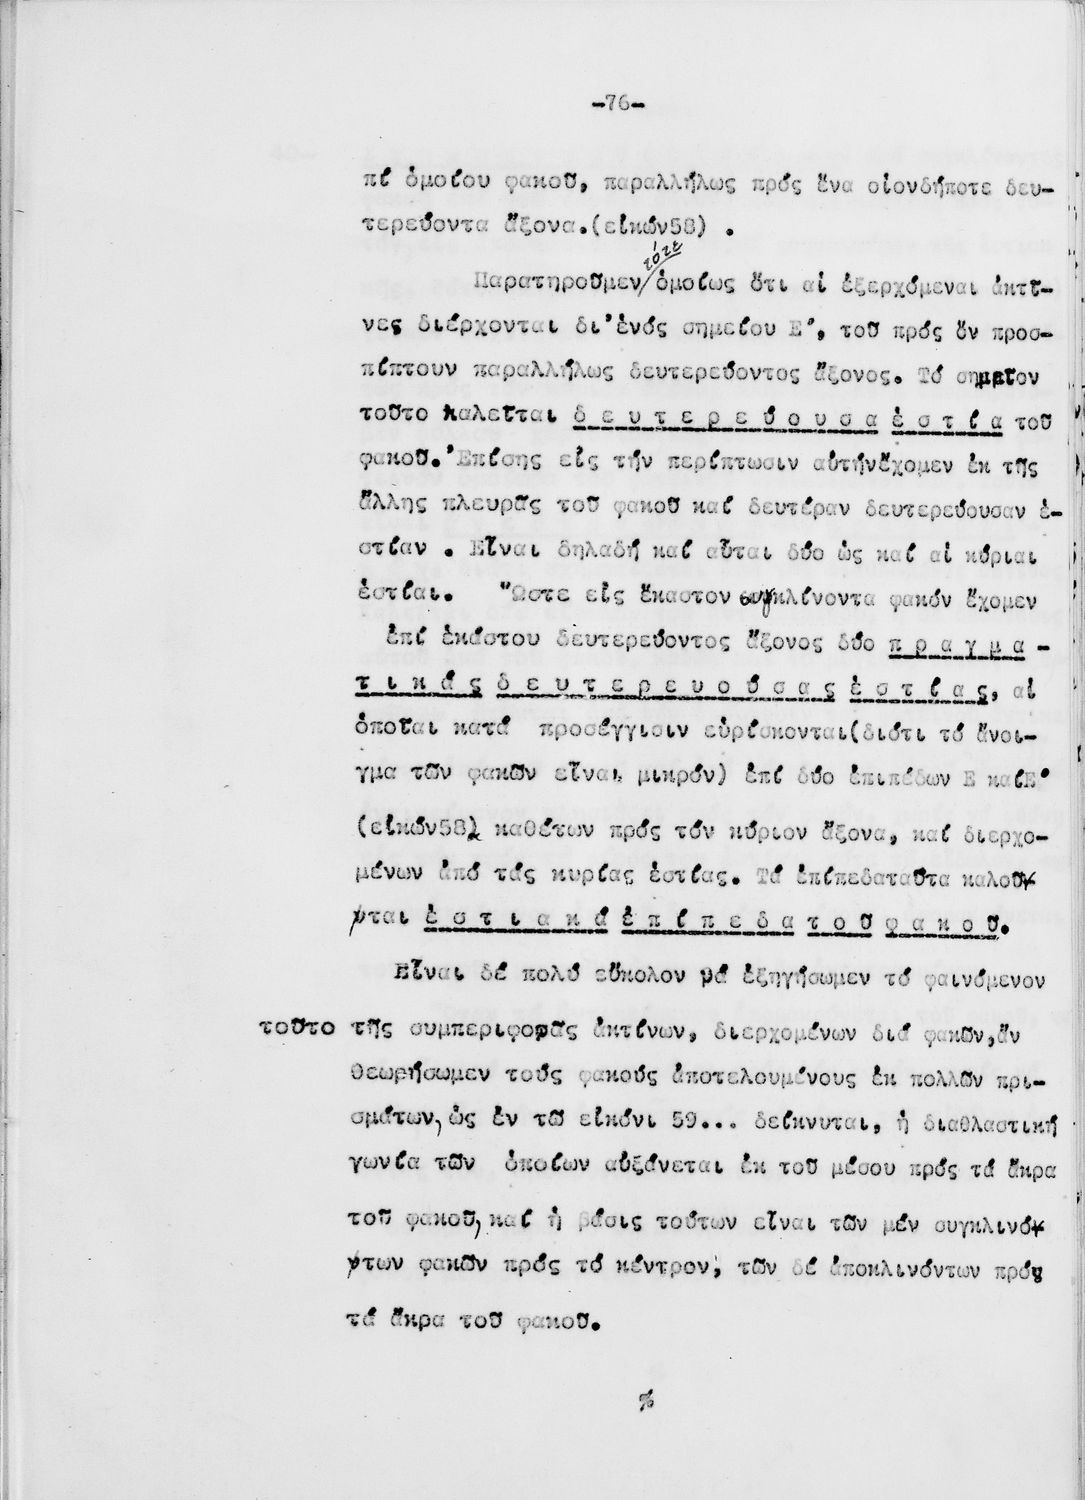 -76-
πί ὁμοίου φακοῦ, παραλλήλως πρός ἕνα οἱονδήποτε δευ-
τερεύοντα ἄξονα.(εἰκών58) .
τότε
Παρατηροῦμεν/ὁμοίως ὅτι αἱ ἐξερχόμεναι ἀκτῖ-
νες διέρχονται δι'ἑνός σημείου Ε', τοῦ πρός ὅν προσ-
πίπτουν παραλλήλως δευτερεύοντος ἄξονος. Τό σημεῖον
τοῦτο καλεῖται δ ε υ τ ε ρ ε ύ ο υ σ α ἑ σ τ ί α τοῦ
φακοῦ.'Επίσης εἰς τήν περίπτωσιν αὐτήνἔχομεν ἐκ τῆς
ἄλλης πλευρᾶς τοῦ φακοῦ καί δευτέραν δευτερεύουσαν ἑ-
στίαν . Εἶναι δηλαδή καί αὗται δύο ὡς καί αἱ κύριαι
ἑστίαι. Ὥστε εἰς ἕκαστον συγκλίνοντα φακόν ἔχομεν
ἐπί ἑκάστου δευτερεύοντος ἄξονος δύο π ρ α γ μ α -
τ ι κ ά ς δ ε υ τ ε ρ ε υ ο ύ σ α ς ἑ σ τ ί α ς, αἱ
ὁποῖαι κατά προσέγγισιν εὑρίσκονται(διότι τό ἄνοι-
γμα τῶν φακῶν εἶναι μικρόν) ἐπί δύο ἐπιπέδων Ε καίΕ'
(εἰκών58) καθέτων πρός τόν κύριον ἄξονα, καί διερχο-
μένων ἀπό τάς κυρίας ἑστίας. Τά ἐπίπεδαταῦτα καλοῦν
νται ἑ σ τ ι α κ ά ἐ π ί π ε δ α τ ο ῦ φ α κ ο ῦ.
Εἶναι δέ πολύ εὔκολον νά ἐξηγήσωμεν τό φαινόμενον
τοῦτο τῆς συμπεριφορᾶς ἀκτίνων, διερχομένων διά φακῶν,ἄν
θεωρήσωμεν τούς φακούς ἀποτελουμένους ἐκ πολλῶν πρι-
σμάτων, ὡς ἐν τῶ εἰκόνι 59... δείκνυται, ἡ διαθλαστική
γωνία τῶν ὁποίων αὐξάνεται ἐκ τοῦ μέσου πρός τά ἄκρα
τοῦ φακοῦ, καί ἡ βάσις τούτων εἶναι τῶν μέν συγκλινόν
ντων φακῶν πρός τό κέντρον, τῶν δέ ἀποκλινόντων πρός
τά ἄκρα τοῦ φακοῦ.
%